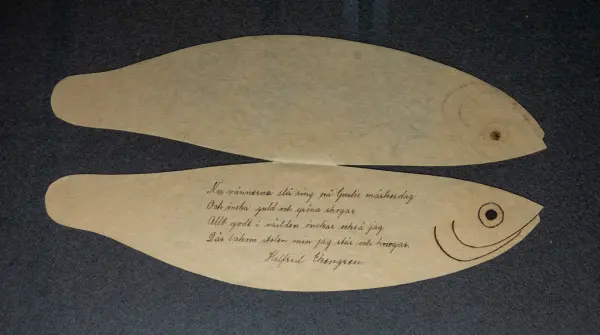 När vännerna slå ring på Gustis märkesdag
Och önska guld och gröna skogar
Allt godt i världen önskar också jag
Där bakom stolen men jag står och knogar.
Hilfred Ekengren